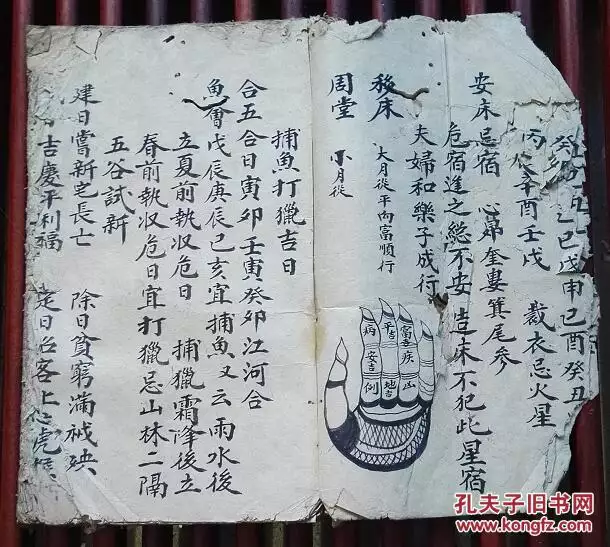 乙巳戊申己酉癸丑
丙辰辛酉壬戌 裁衣忌火星
安床忌宿 心昴奎婁箕尾參
危宿逢之総不安造床不犯此星宿
夫婦和樂子成行
移床 大月從平向富順行
周堂 小月從
富 疾 凶
平吉 地吉
病 安吉 例
捕魚打獵吉日
合五合日寅卯壬寅癸卯江河合
魚會戊辰庚辰己亥宜捕魚又云雨水後
立夏前執収危日 捕獵霜降後立
春前執収危日宜打獵忌山林二隔
五谷試新
建日嘗新宅長亡 除日貧窮滿祸殃
吉慶平利福 定日
孔夫子旧书网
www.kongfz.com